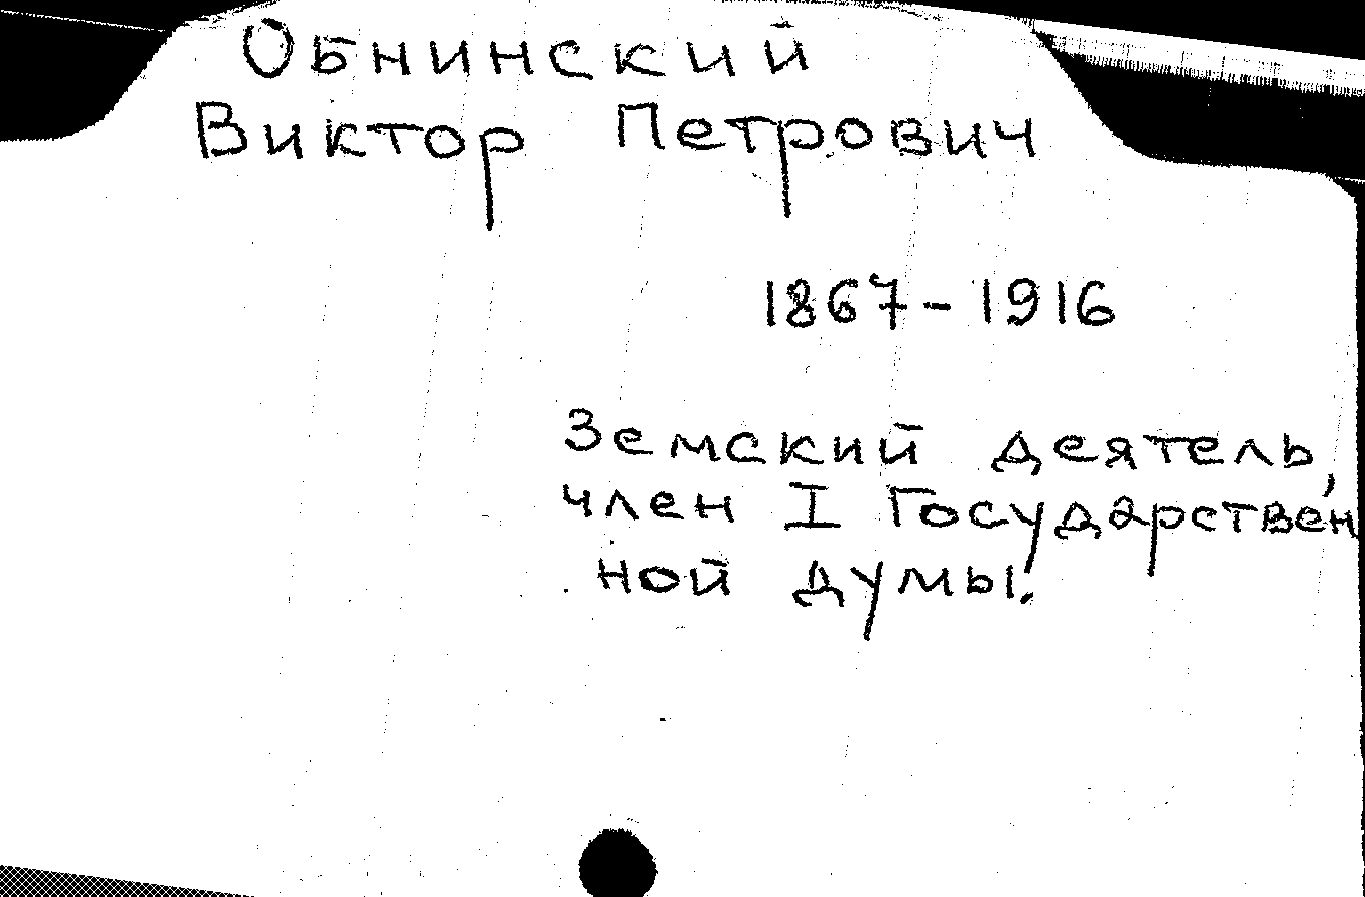 Обнинский
Виктор Петрович
1867-1916
Земский деятель,
член I Государствен
ной думы.